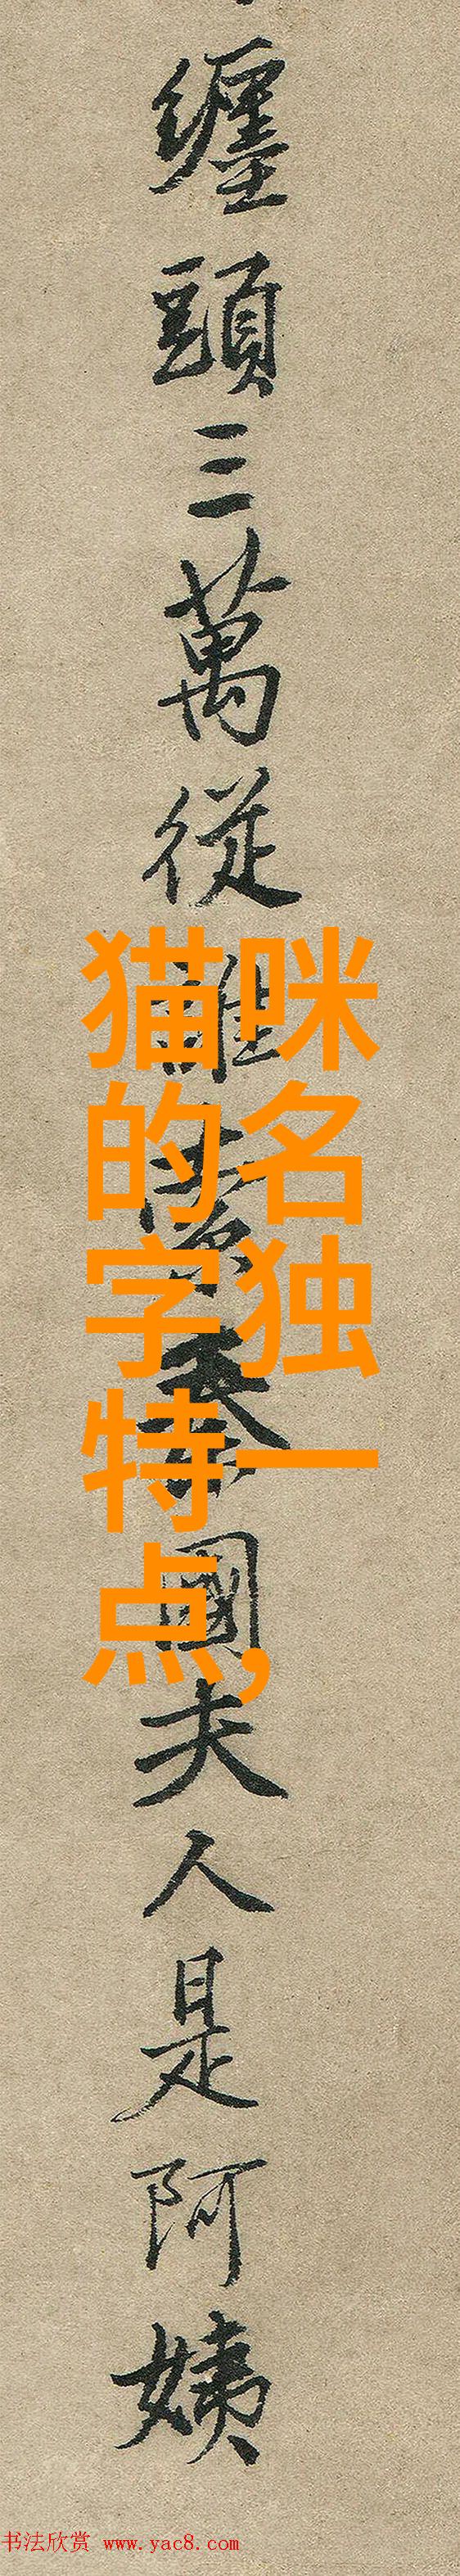 纏頭三萬從誰索秦國夫人是阿姨
猫咪
的名
字独
特一
点,
书法欣赏 www.yac8.com